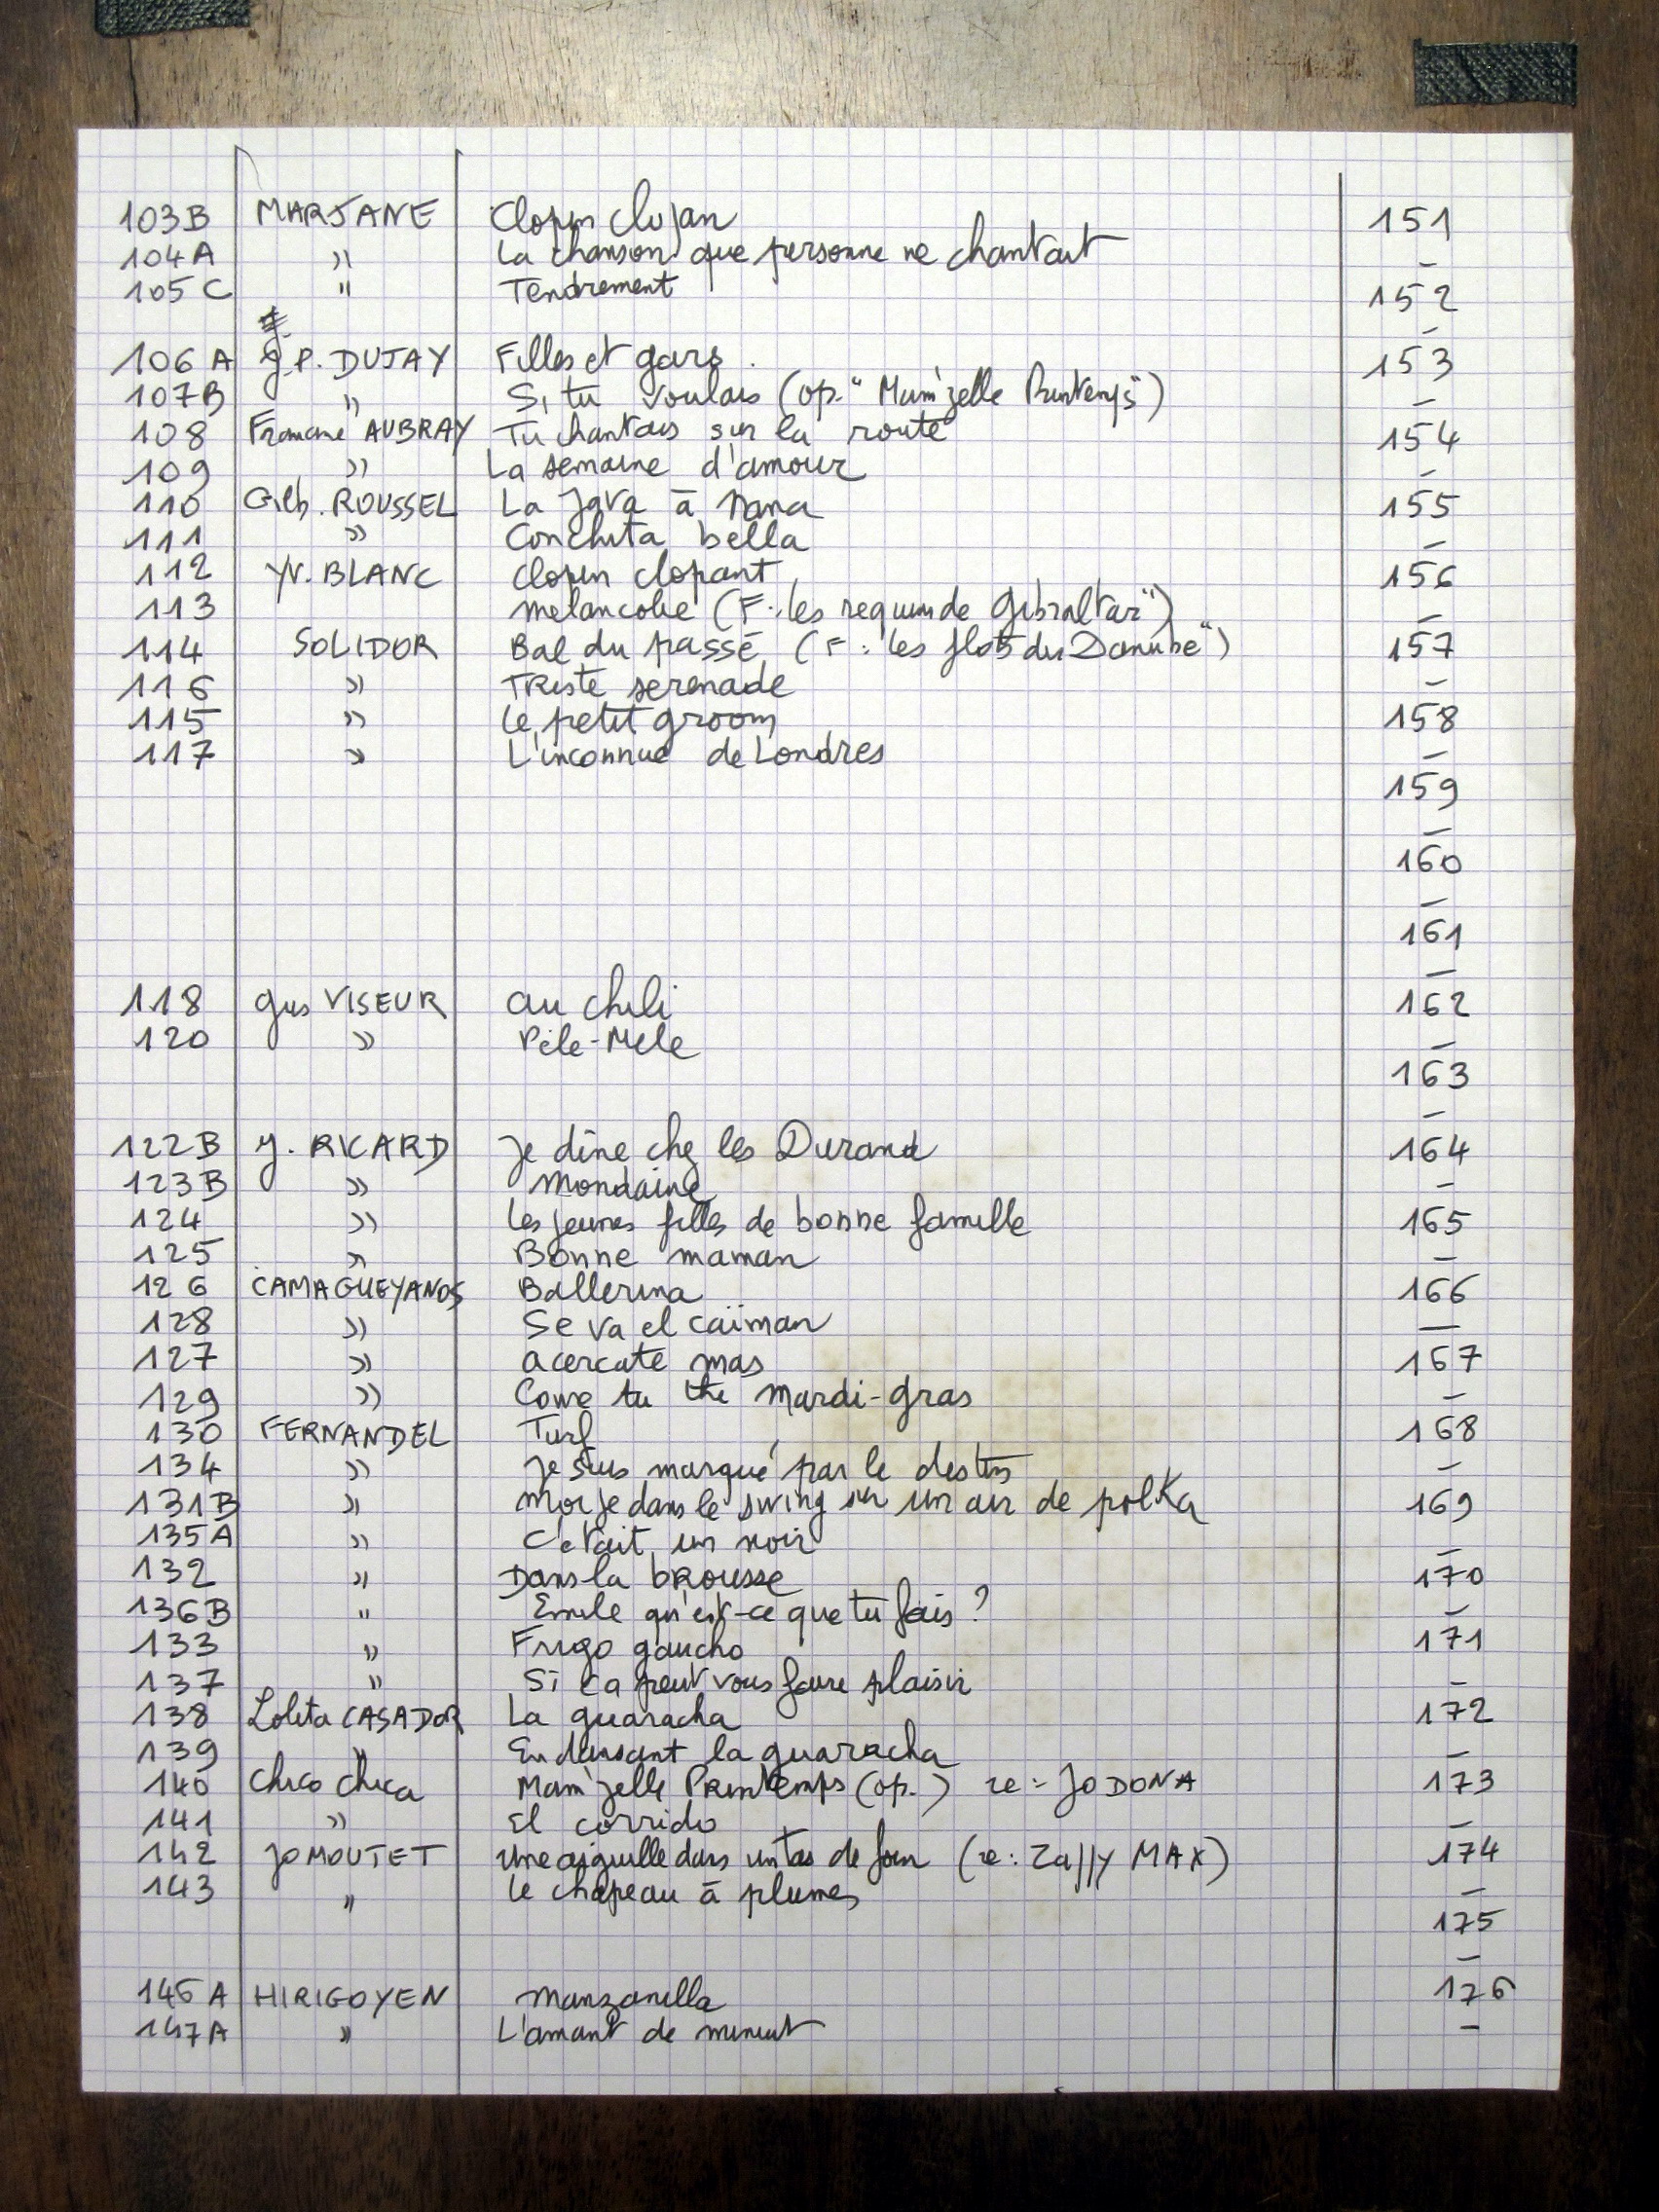 103B MARJANE Clopin Clopan 151
104A " La chanson que personne ne chantait -
105C " Tendrement 152
-
106A J.P. DUJAY Filles et gars. 153
107B " Si tu voulais (op. "Mam'zelle Printemps") -
108 Francine AUBRAY Tu chantais sur la route 154
109 " La semaine d'amour -
110 Gilb. ROUSSEL La Java à Nana 155
111 " Conchita bella -
112 YV. BLANC Clopin clopant 156
113 melancolie (F: "les requins de Gibraltar") -
114 SOLIDOR Bal du passé (F: "les flots du Danube") 157
116 " Triste serenade -
115 " Le petit groom 158
117 " L'inconnue de Londres -
159
-
160
-
161
-
118 gus VISEUR au chili 162
120 " Pèle-Mele -
163
-
122B J. RICARD Je dîne chez les Durand 164
123B " Mondaine -
124 " Les jeunes filles de bonne famille 165
125 " Bonne maman -
126 CAMAGUEYANOS Ballerina 166
128 " Se va el caïman -
127 " acercate mas 167
129 " Come tu the mardi-gras -
130 FERNANDEL Turf 168
134 " Je suis marqué par le destin -
131B " Moi je dans le swing sur un air de polka 169
135A " C'etait un noir -
132 " Dans la brousse 170
136B " Emile qu'est-ce que tu fais? -
133 " Frigo gaucho 171
137 " Si ca peut vous faire plaisir -
138 Lolita CASADOR La guaracha 172
139 " En dansant la guaracha -
140 Chico chica Mam'zelle Printemps (op.) re:- JO DONA 173
141 " El corrido -
142 JO MOUTET Une aiguille dans un tas de foin (re: Zappy MAX) 174
143 " Le chapeau à plumes -
175
-
146A HIRIGOYEN Manzanilla 176
147A " L'amant de minuit -